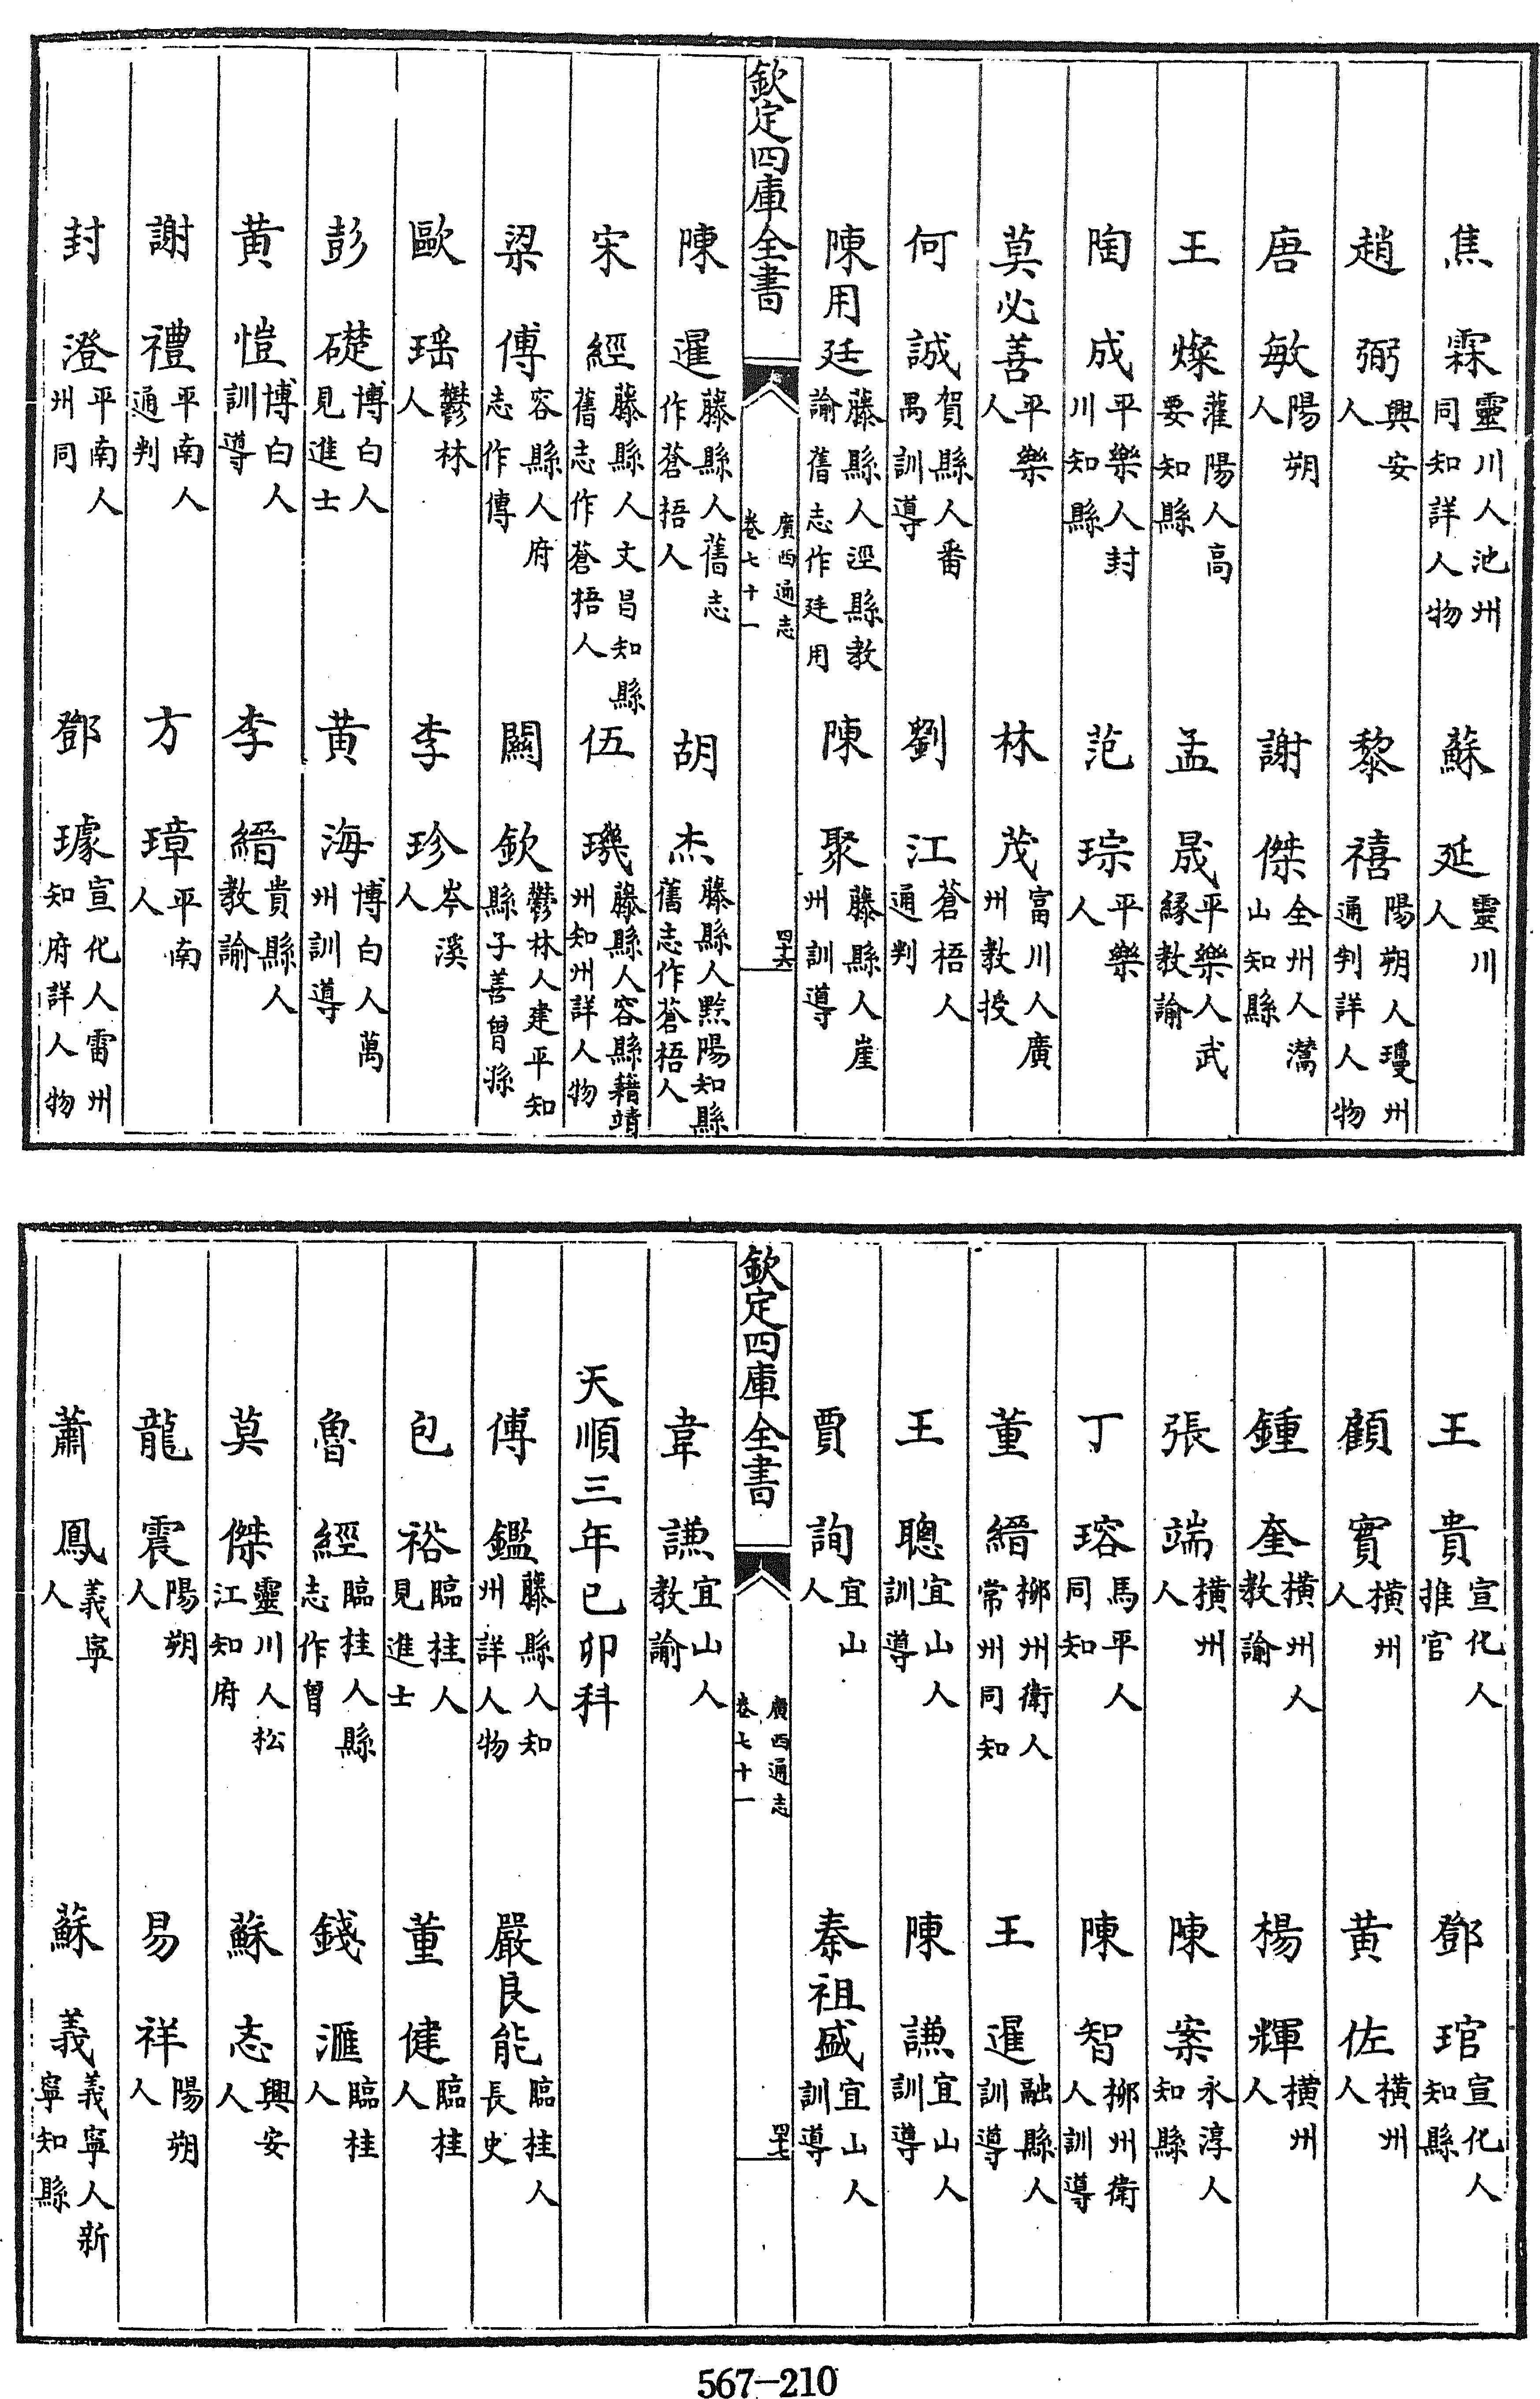 焦霖靈川人池州同知詳人物　蘇延靈川人
趙弼興安人　黎禧陽朔人瓊州通判詳人物
唐敏陽朔人　謝傑全州人灊山知縣
王燦灌陽人高要知縣　孟晟平樂人武緣教諭
陶成平樂人封川知縣　范琮平樂人
莫必善平樂人　林茂富川人廣州教授
何誠賀縣人番禺訓導　劉江蒼梧人通判
陳用廷藤縣人涇縣教諭舊志作廷用　陳聚藤縣人崖州訓導
欽定四庫全書　廣西通志卷七十一　四六
陳暹藤縣人舊志作蒼梧人　胡杰藤縣人黟陽知縣舊志作蒼梧人
宋經藤縣人文昌知縣舊志作蒼梧人　伍璣藤縣人容縣籍靖州知州詳人物
梁傅容縣人府志作傳　關欽鬱林人建平知縣子善曾孫
歐瑶鬱林人　李珍岑溪人
彭礎博白人見進士　黄海博白人萬州訓導
黄愷博白人訓導　李縉貴縣人教諭
謝禮平南人通判　方璋平南人
封澄平南人州同　鄧璩宣化人雷州知府詳人物
王貴宣化人推官　鄧琯宣化人知縣
顧實橫州人　黄佐橫州人
鍾奎橫州人教諭　楊輝橫州人
張端橫州人　陳案永淳人知縣
丁瑢馬平人同知　陳智柳州衛人訓導
董縉柳州衛人常州同知　王暹融縣人訓導
王聰宜山人訓導　陳謙宜山人訓導
賈詢宜山人　秦祖盛宜山人訓導
欽定四庫全書　廣西通志卷七十一　四七
韋謙宜山人教諭
天順三年己卯科
傅鑑藤縣人知州詳人物　嚴良能臨桂人長史
包裕臨桂人見進士　董健臨桂人
魯經臨桂人縣志作曾　錢滙臨桂人
莫傑靈川人松江知府　蘇志興安人
龍震陽朔人　易祥陽朔人
蕭鳳義寧人　蘇義義寧人新寧知縣
567-210